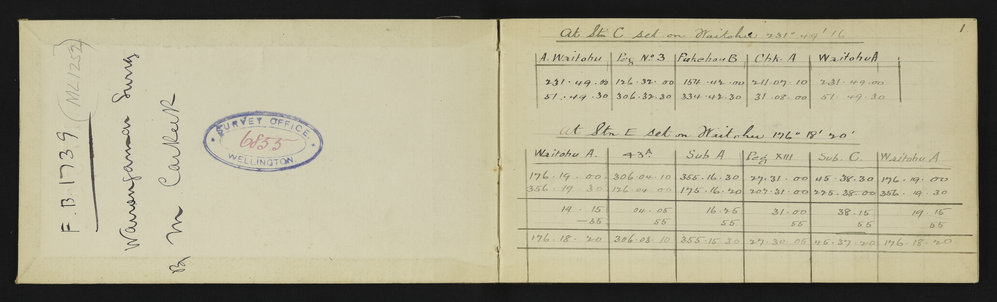 F.B. 1739 (ML 1252)
By M Carkeek
SURVEY OFFICE
6855
WELLINGTON
1
At Stn C set on Waitohu 231° 49' 16
A. Waitohu Peg No 3 Pukehou B Chk. A Waitohu A
231. 49. 00 126. 32. 00 154. 42. 00 211. 07. 10 231. 49. 00
51. 49. 30 306. 32. 30 334. 42. 30 31. 08. 00 51. 49. 30
At Stn E set on Waitohu 176° 18' 20'
Waitohu A. 43A Sub A Peg XIII Sub. C. Waitohu A
176. 19. 00 306. 04. 10 355. 16. 30 27. 31. 00 45. 38. 30 176. 19. 00
356. 19. 30 126. 04. 00 175. 16. 20 207. 31. 00 225. 38. 00 356. 19. 30
19. 15 04. 05 16. 25 31. 00 38. 15 19. 15
-55 55 55 55 55 55
176. 18. 20 306. 03. 10 355. 15. 30 27. 30. 05 45. 37. 20 176. 18. 20